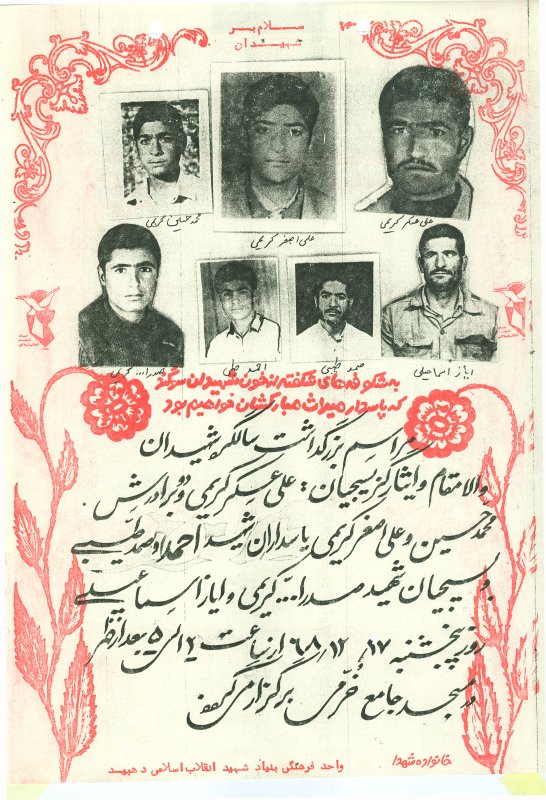 سلام بر
شهیدان
محمد حسین کریمی
علی اصغر کریمی
علی عسکر کریمی
صدرا... کریمی
احمد طیبی
صمد طیبی
ایاز اسماعیلی
به شکوفه‌های شکفته از خون شهیدان سوگند
که پاسدار میراث مبارکشان خواهیم بود
مراسم بزرگداشت سالگرد شهیدان
والامقام و ایثارگر بسیجیان: علی عسکر کریمی و دو برادرش
محمد حسین و علی اصغر کریمی پاسداران شهید احمد و صمد طیبی
و بسیجیان شهید صدرا... کریمی و ایاز اسماعیلی
روز پنجشنبه ۶۸٫۱۲٫۱۷ از ساعت ۲ الی ۵ بعد از ظهر
در مسجد جامع خرمی برگزار می گردد
خانواده شهدا
واحد فرهنگی بنیاد شهید انقلاب اسلامی دهبید